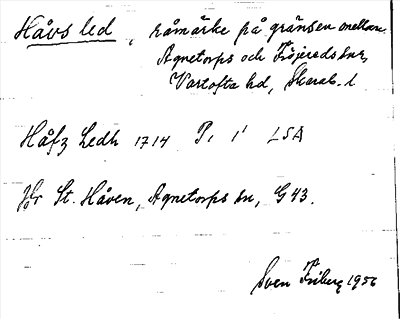 Håvs led, råmärke på gränsen mellan
Agnetorps och Fröjereds snr,
Vartofta hd, Skarab. l
Håfz Ledh 1714 P. 1¹ LSA
Jfr St. Håven, Agnetorps sn, G 43.
Sven Friberg 1956